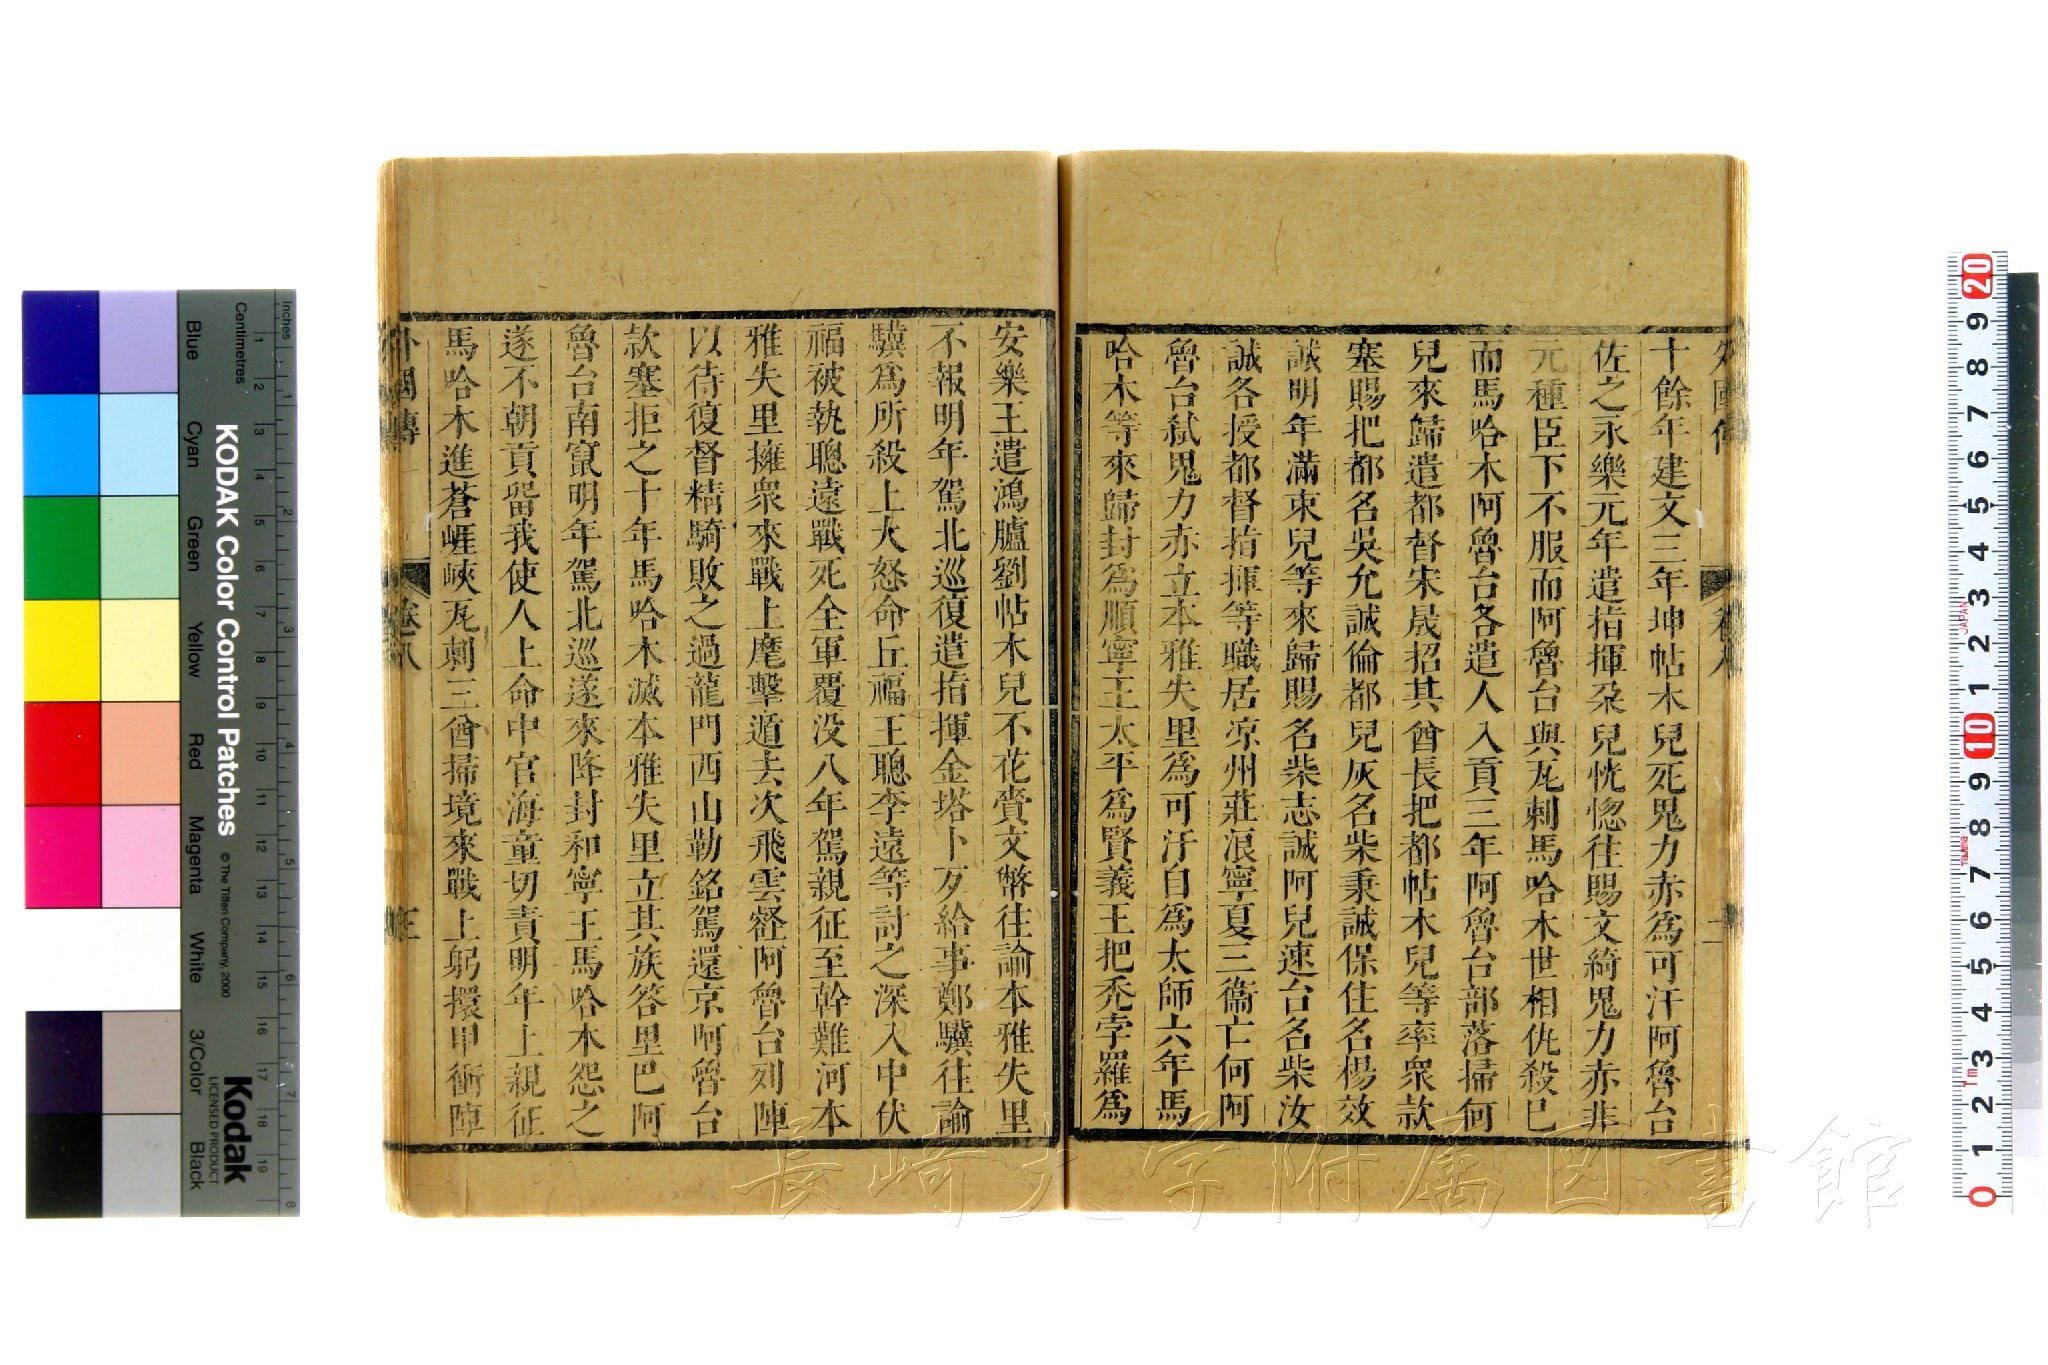 十餘年建文三年坤帖木兒死鬼力赤為可汗阿魯台
佐之永樂元年遣指揮朶兒恍惚往賜文綺鬼力赤非
元種臣下不服而阿魯台與瓦剌馬哈木世相仇殺已
而馬哈木阿魯台各遣人入貢三年阿魯台部落掃何
兒來歸遣都督宋晟招其酋長把都帖木兒等率衆款
塞賜把都名吳允誠倫都兒灰名柴秉誠保住名楊效
誠明年滿束兒等來歸賜名柴志誠阿兒速台名柴汝
誠各授都督指揮等職居凉州莊浪寧夏三衞亡何阿
魯台弒鬼力赤立本雅失里為可汗自為太師六年馬
哈木等來歸封為順寧王太平為賢義王把禿孛羅為
安樂王遣鴻臚劉帖木兒不花賫文幣往諭本雅失里
不報明年駕北巡復遣指揮金塔卜歹給事鄭驥往諭
驥為所殺上大怒命丘福王聰李遠等討之深入中伏
福被執聰遠戰死全軍覆没八年駕親征至幹難河本
雅失里擁衆來戰上麾擊遁去次飛雲壑阿魯台列陣
以待復督精騎敗之過龍門西山勒銘駕還京阿魯台
款塞拒之十年馬哈木滅本雅失里立其族答里巴阿
魯台南竄明年駕北巡遂來降封和寧王馬哈木怨之
遂不朝貢留我使人上命中官海童切責明年上親征
馬哈木進蒼崕峽瓦剌三酋掃境來戰上躬擐甲衝陣
外國傳
卷八
長崎大学附属図書館
KODAK Color Control Patches
© The Tiffen Company, 2000
Kodak
LICENSED PRODUCT
Inches
Centimetres
Blue
Cyan
Green
Yellow
Red
Magenta
White
3/Color
Black
JAPAN